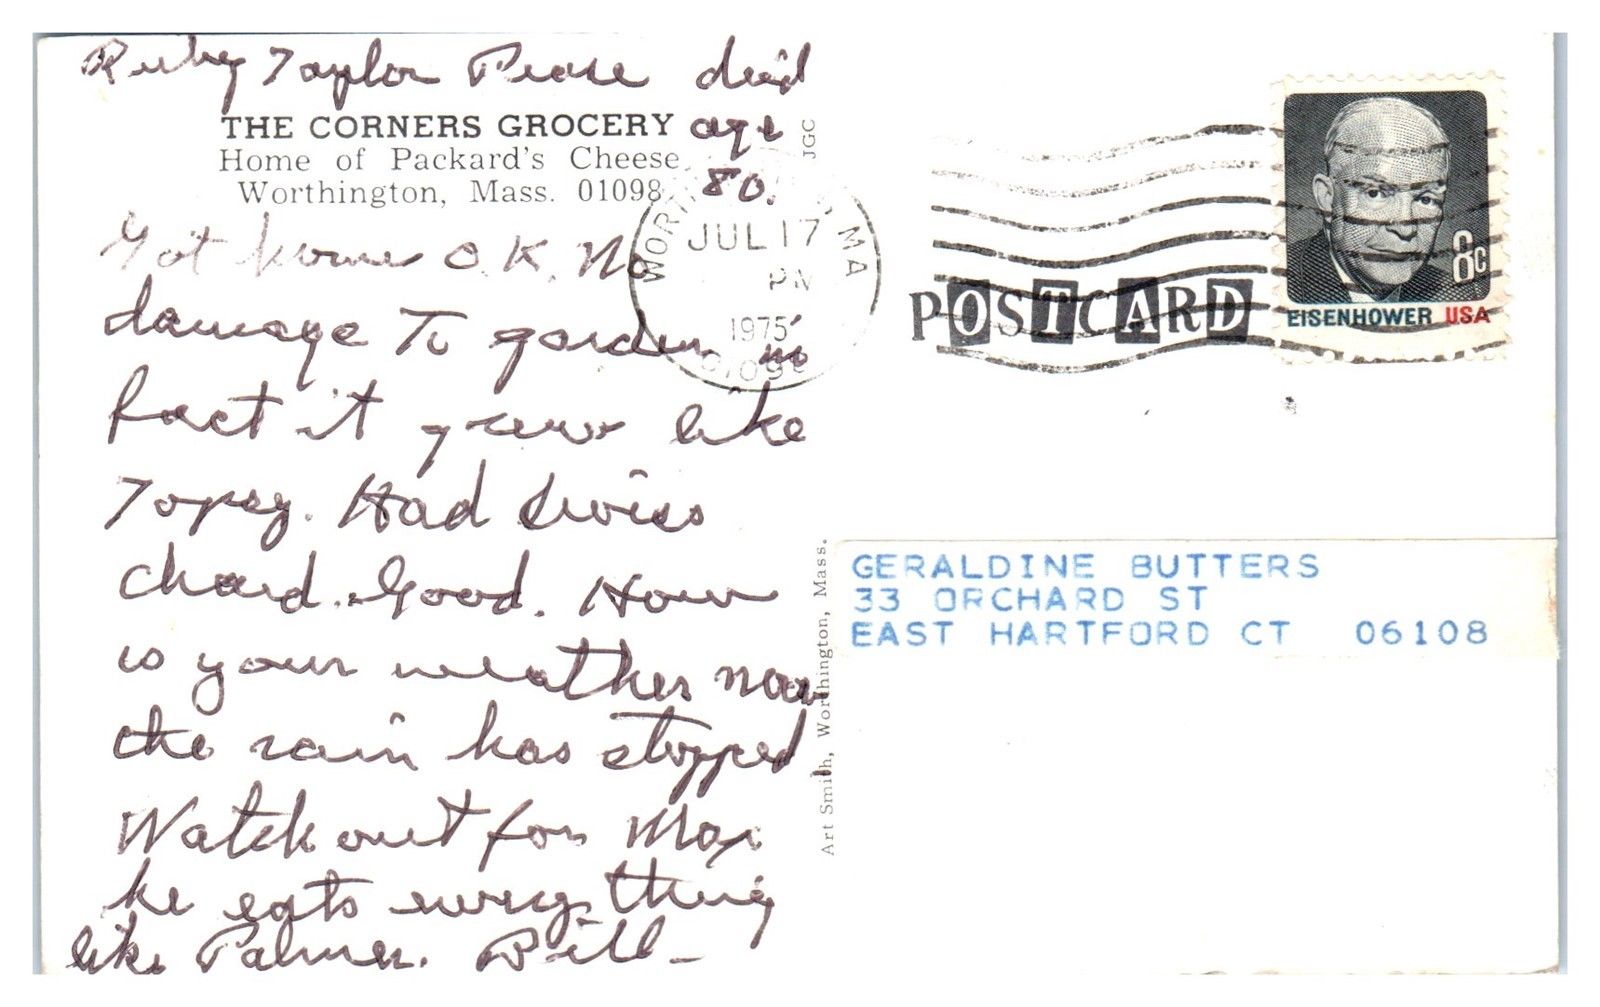 Ruby Taylor Pease died
THE CORNERS GROCERY age
Home of Packard's Cheese 80.
Worthington, Mass. 01098
JGC
Got home O.K. No
damage To garden in
fact it grew like
Topsy. Had Swiss
chard. Good. How
is your weather now
the rain has stopped
Watch out for Max
he eats everything
like Palmer. Bill
WORTHINGTON MA
JUL 17
PM
1975
01098
POSTCARD
8c
EISENHOWER USA
Art Smith, Worthington, Mass.
GERALDINE BUTTERS
33 ORCHARD ST
EAST HARTFORD CT 06108